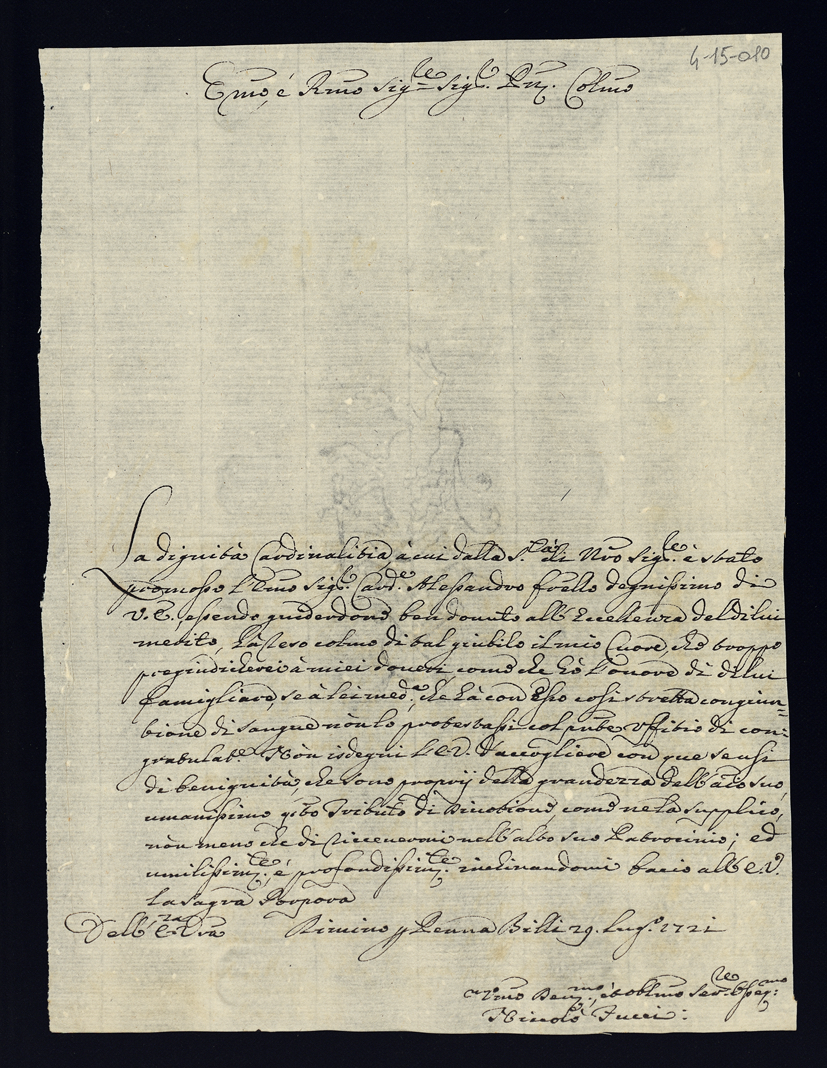 4-15-010
Emo, é Rmo Sigre Sigr. Prn. Colmo
La dignità Cardinalitia, à cui dalla S.tà di Nro Sigre. è stato
promosso l'Emo Sigr. Card.e Alessandro frello degnissimo di
V. E. essendo guiderdone ben donuto all'Eccellenza del di lui
merito, hà reso colmo di tal giubilo il mio Cuore, che troppo
pregiudicherei à miei doveri come che hò l'onore di di lui
famigliare, se à lei med.a, che hà con Esso così stretta congiun=
tione di sangue nòn lo protestassi col pnte Uffitio di con=
gratulat.e Nòn isdegni l'E.V. d'accogliere con que sensi
di benignità, che sono proprij della grandezza dell'aio suo,
umanissimo qsto Tributo di Divotione, come ne la supplico,
nòn meno che di ricevermi nell'alto suo Patrocinio; ed
umilissimte. é profondissimte. inclinandomi bacio all'E.V.
la sagra Porpora
Dell'E.za Vra Rimino p Penna Billi 29. Lug.o 1721
Umo Devmo., et obblmo Serre Osseqmo:
Niccolò Tucci: